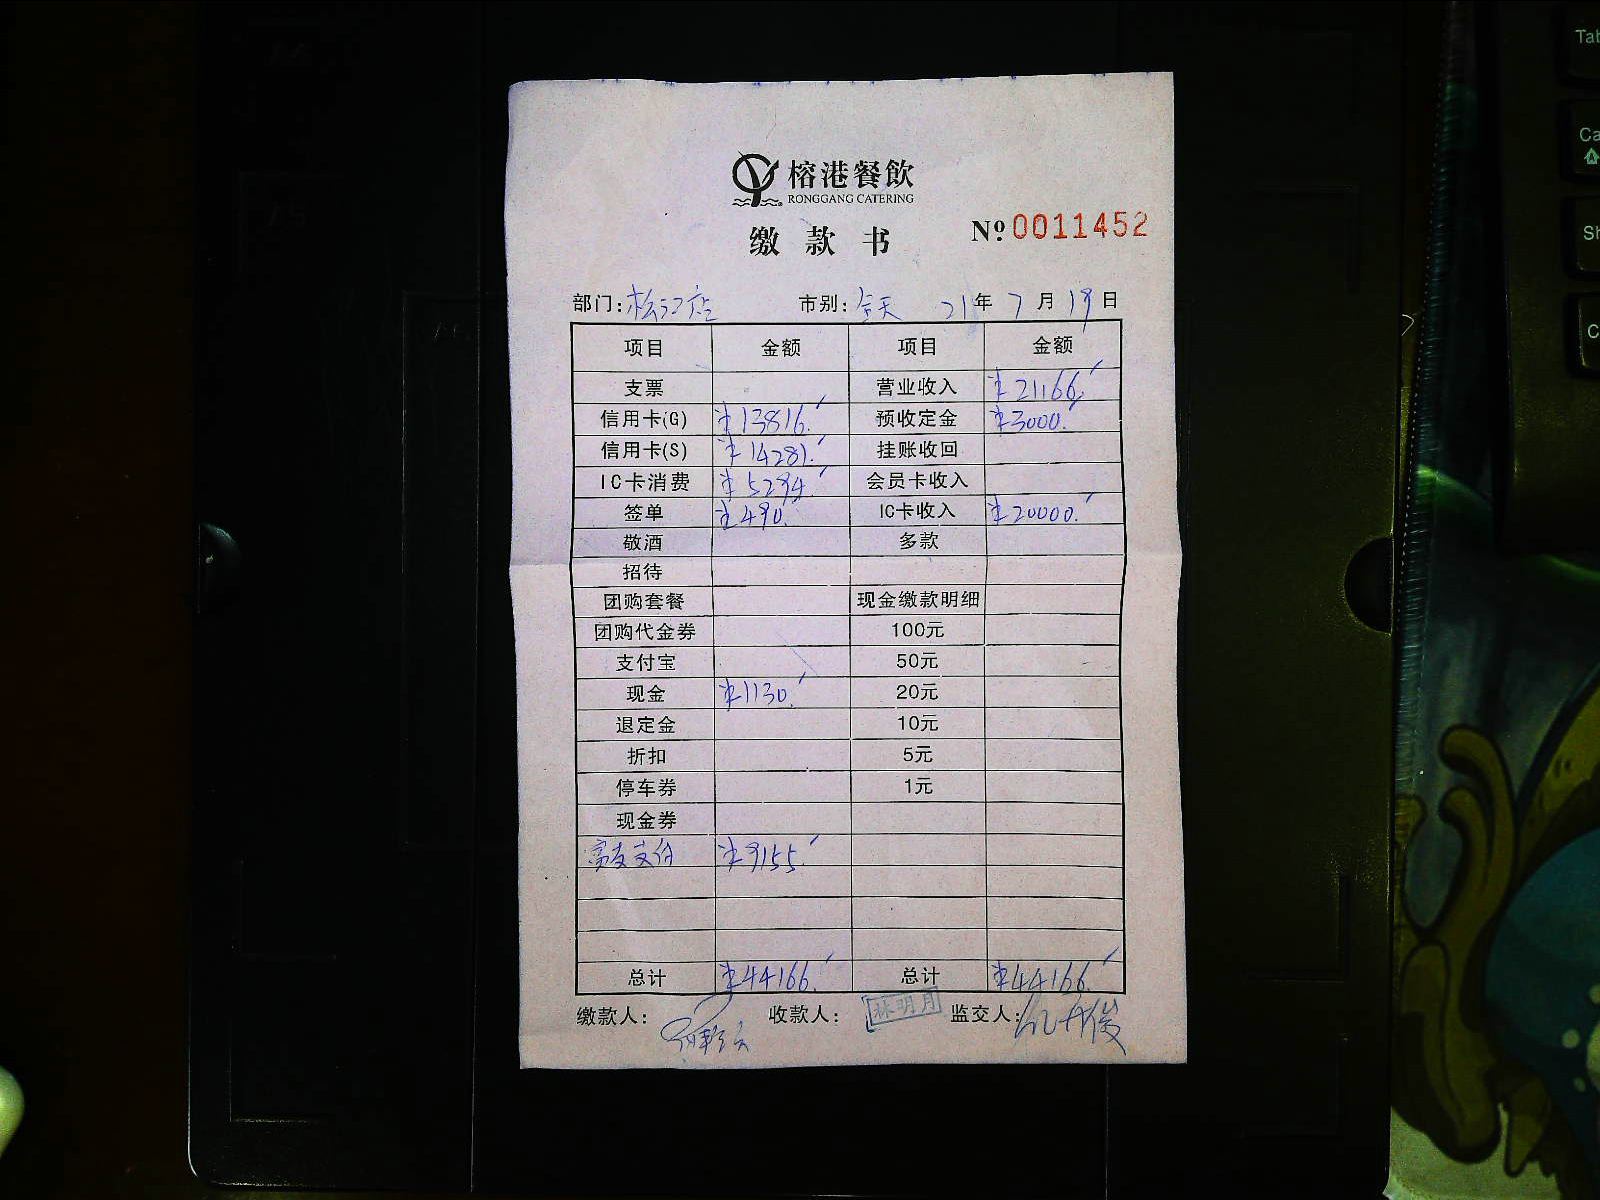 榕港餐飲
RONGGANG CATERING
缴款书 Nº 0011452
部门: 松江店 市别: 全天 21年 7月 19日
项目 金额 项目 金额
支票 营业收入 ¥21166.
信用卡(G) ¥13816. 预收定金 ¥3000.
信用卡(S) ¥14281. 挂账收回
IC卡消费 ¥5294. 会员卡收入
签单 ¥490. IC卡收入 ¥20000.
敬酒 多款
招待
团购套餐 现金缴款明细
团购代金券 100元
支付宝 50元
现金 ¥1130. 20元
退定金 10元
折扣 5元
停车券 1元
现金券
富友支付 ¥9155.
总计 ¥44166. 总计 ¥44166.
缴款人: 收款人: 林明月 监交人:
Tab